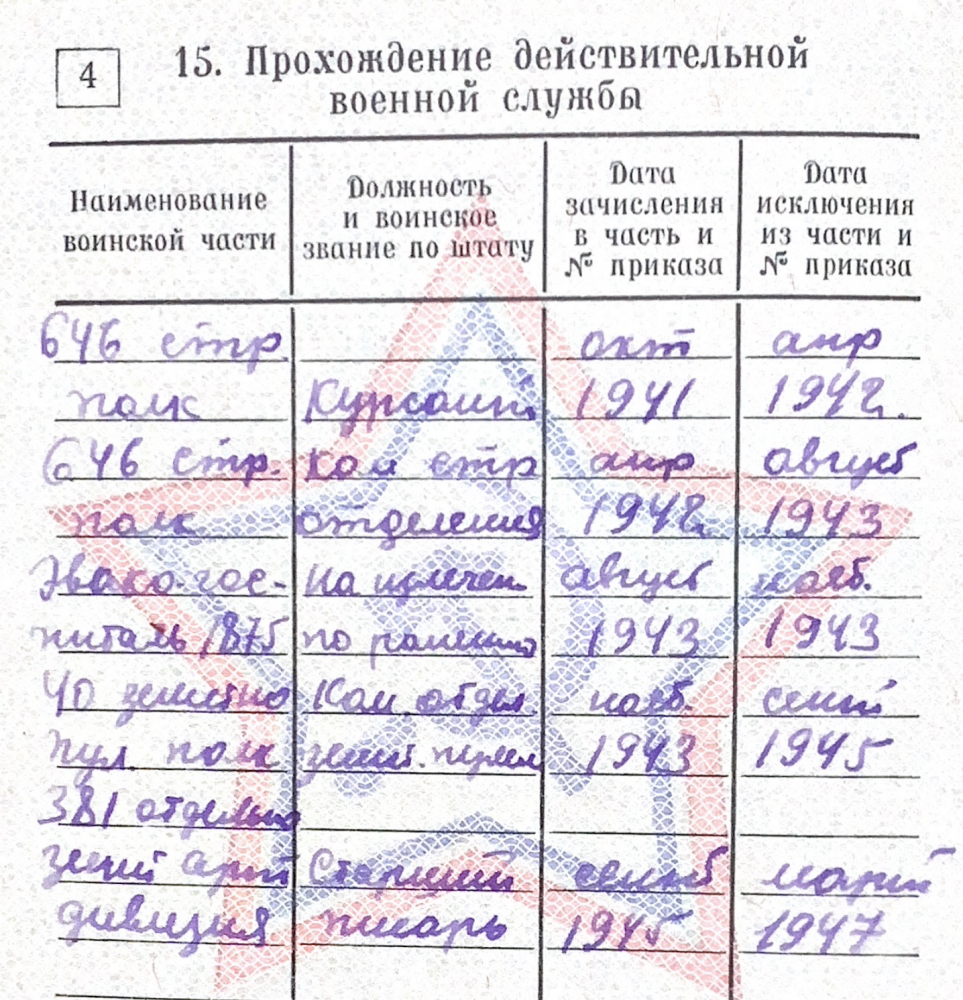 4
15. Прохождение действительной
военной службы
Наименование
воинской части
Должность
и воинское
звание по штату
Дата
зачисления
в часть и
№ приказа
Дата
исключения
из части и
№ приказа
646 стр. окт апр
полк Курсант 1941 1942.
646 стр. Ком стр апр август
полк отделения 1942 1943
Эвако-гос- На излечен август нояб.
питаль 1875 по ранению 1943 1943
40 зенитно Ком. отдел нояб. сент
пул. полк зенит. пулем 1943 1945
381 отдельно
зенит арт Старший сентяб март
дивизия писарь 1945 1947